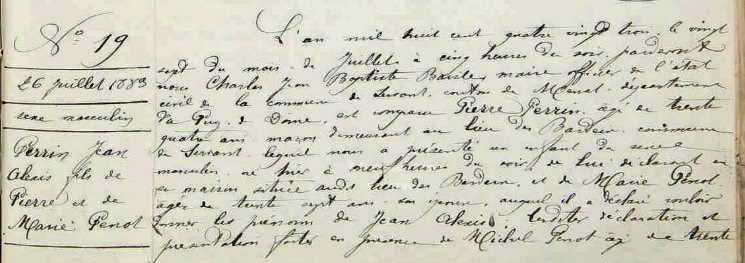 N° 19
26 Juillet 1883
sexe masculin
Perrin Jean
Alexis fils de
Pierre et de
Marie Penot
L'an mil huit cent quatre vingt trois, le vingt
sept du mois de Juillet à cinq heures du soir, pardevant
nous Charles Jean Baptiste maire officier de l'état
civil de la commune de Servant, canton de Menat, département
du Puy de Dome, est comparu Pierre Perrin, agé de trente
quatre ans maçon demeurant au lieu des commune
de Servant lequel nous a présenté un enfant du sexe
masculin, né hier à neuf heures du soir de lui déclarant en
sa maison située audit lieu des et de Marie Penot
agée de trente sept ans son épouse, auquel il a déclaré vouloir
donner les prénoms de Jean Alexis. déclaration et
présentation faites en présence de Michel Penot agé de trente